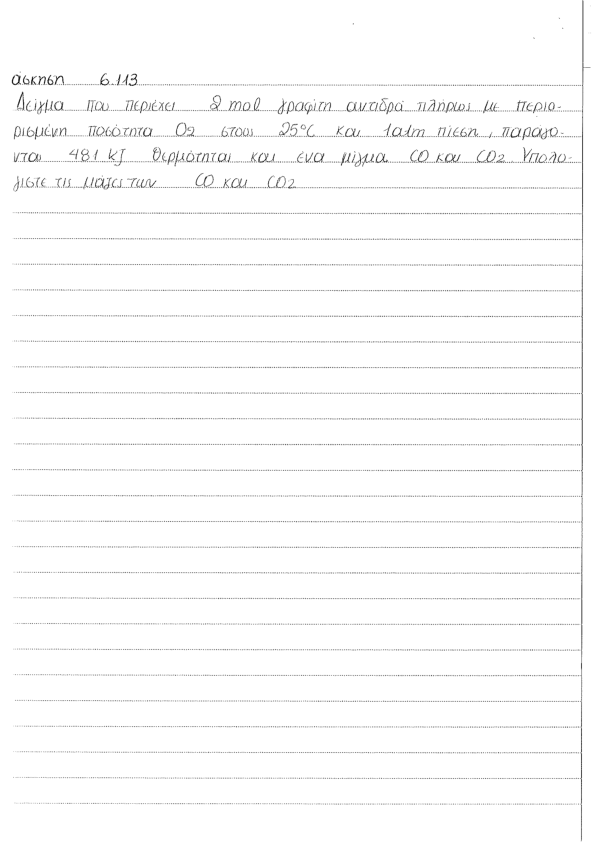 άσκηση 6.113
Δείγμα που περιέχει 2 mol γραφίτη αντιδρά πλήρως με περιο-
ρισμένη ποσότητα O2 στους 25°C και 1atm πίεση, παράγο-
νται 481 kJ θερμότηται και ενα μίγμα CO και CO2 Υπολο-
γίστε τις μάζες των CO και CO2